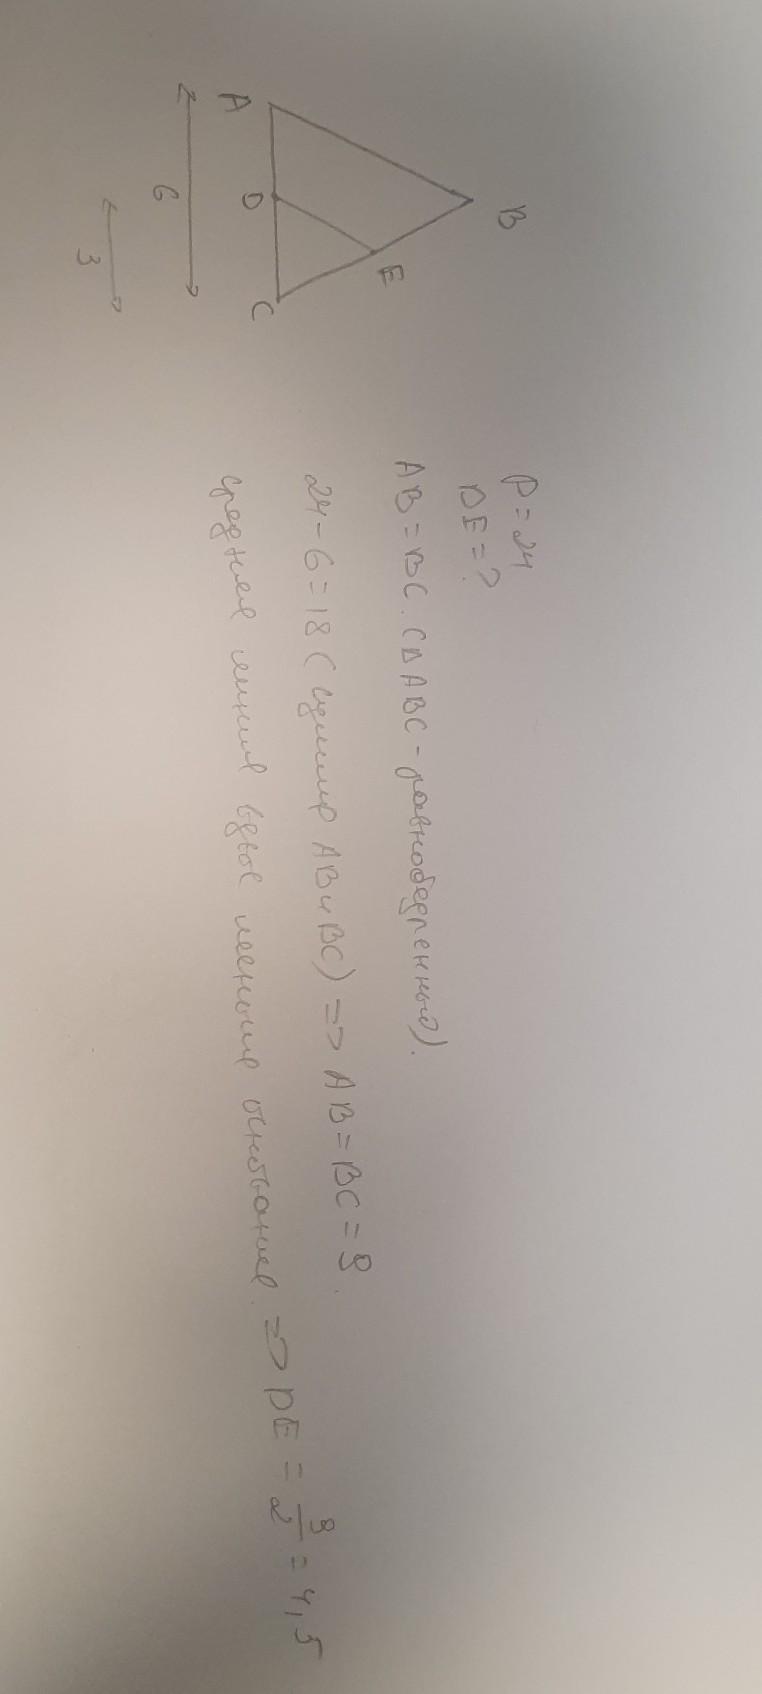 B
A
D
E
C
6
3
P = 24
DE = ?
AB = BC. (ΔABC - равнобедренный).
24 - 6 = 18 (сумма AB и BC) => AB = BC = 9.
средняя линия вдвое меньше основания. => DE = 9/2 = 4,5